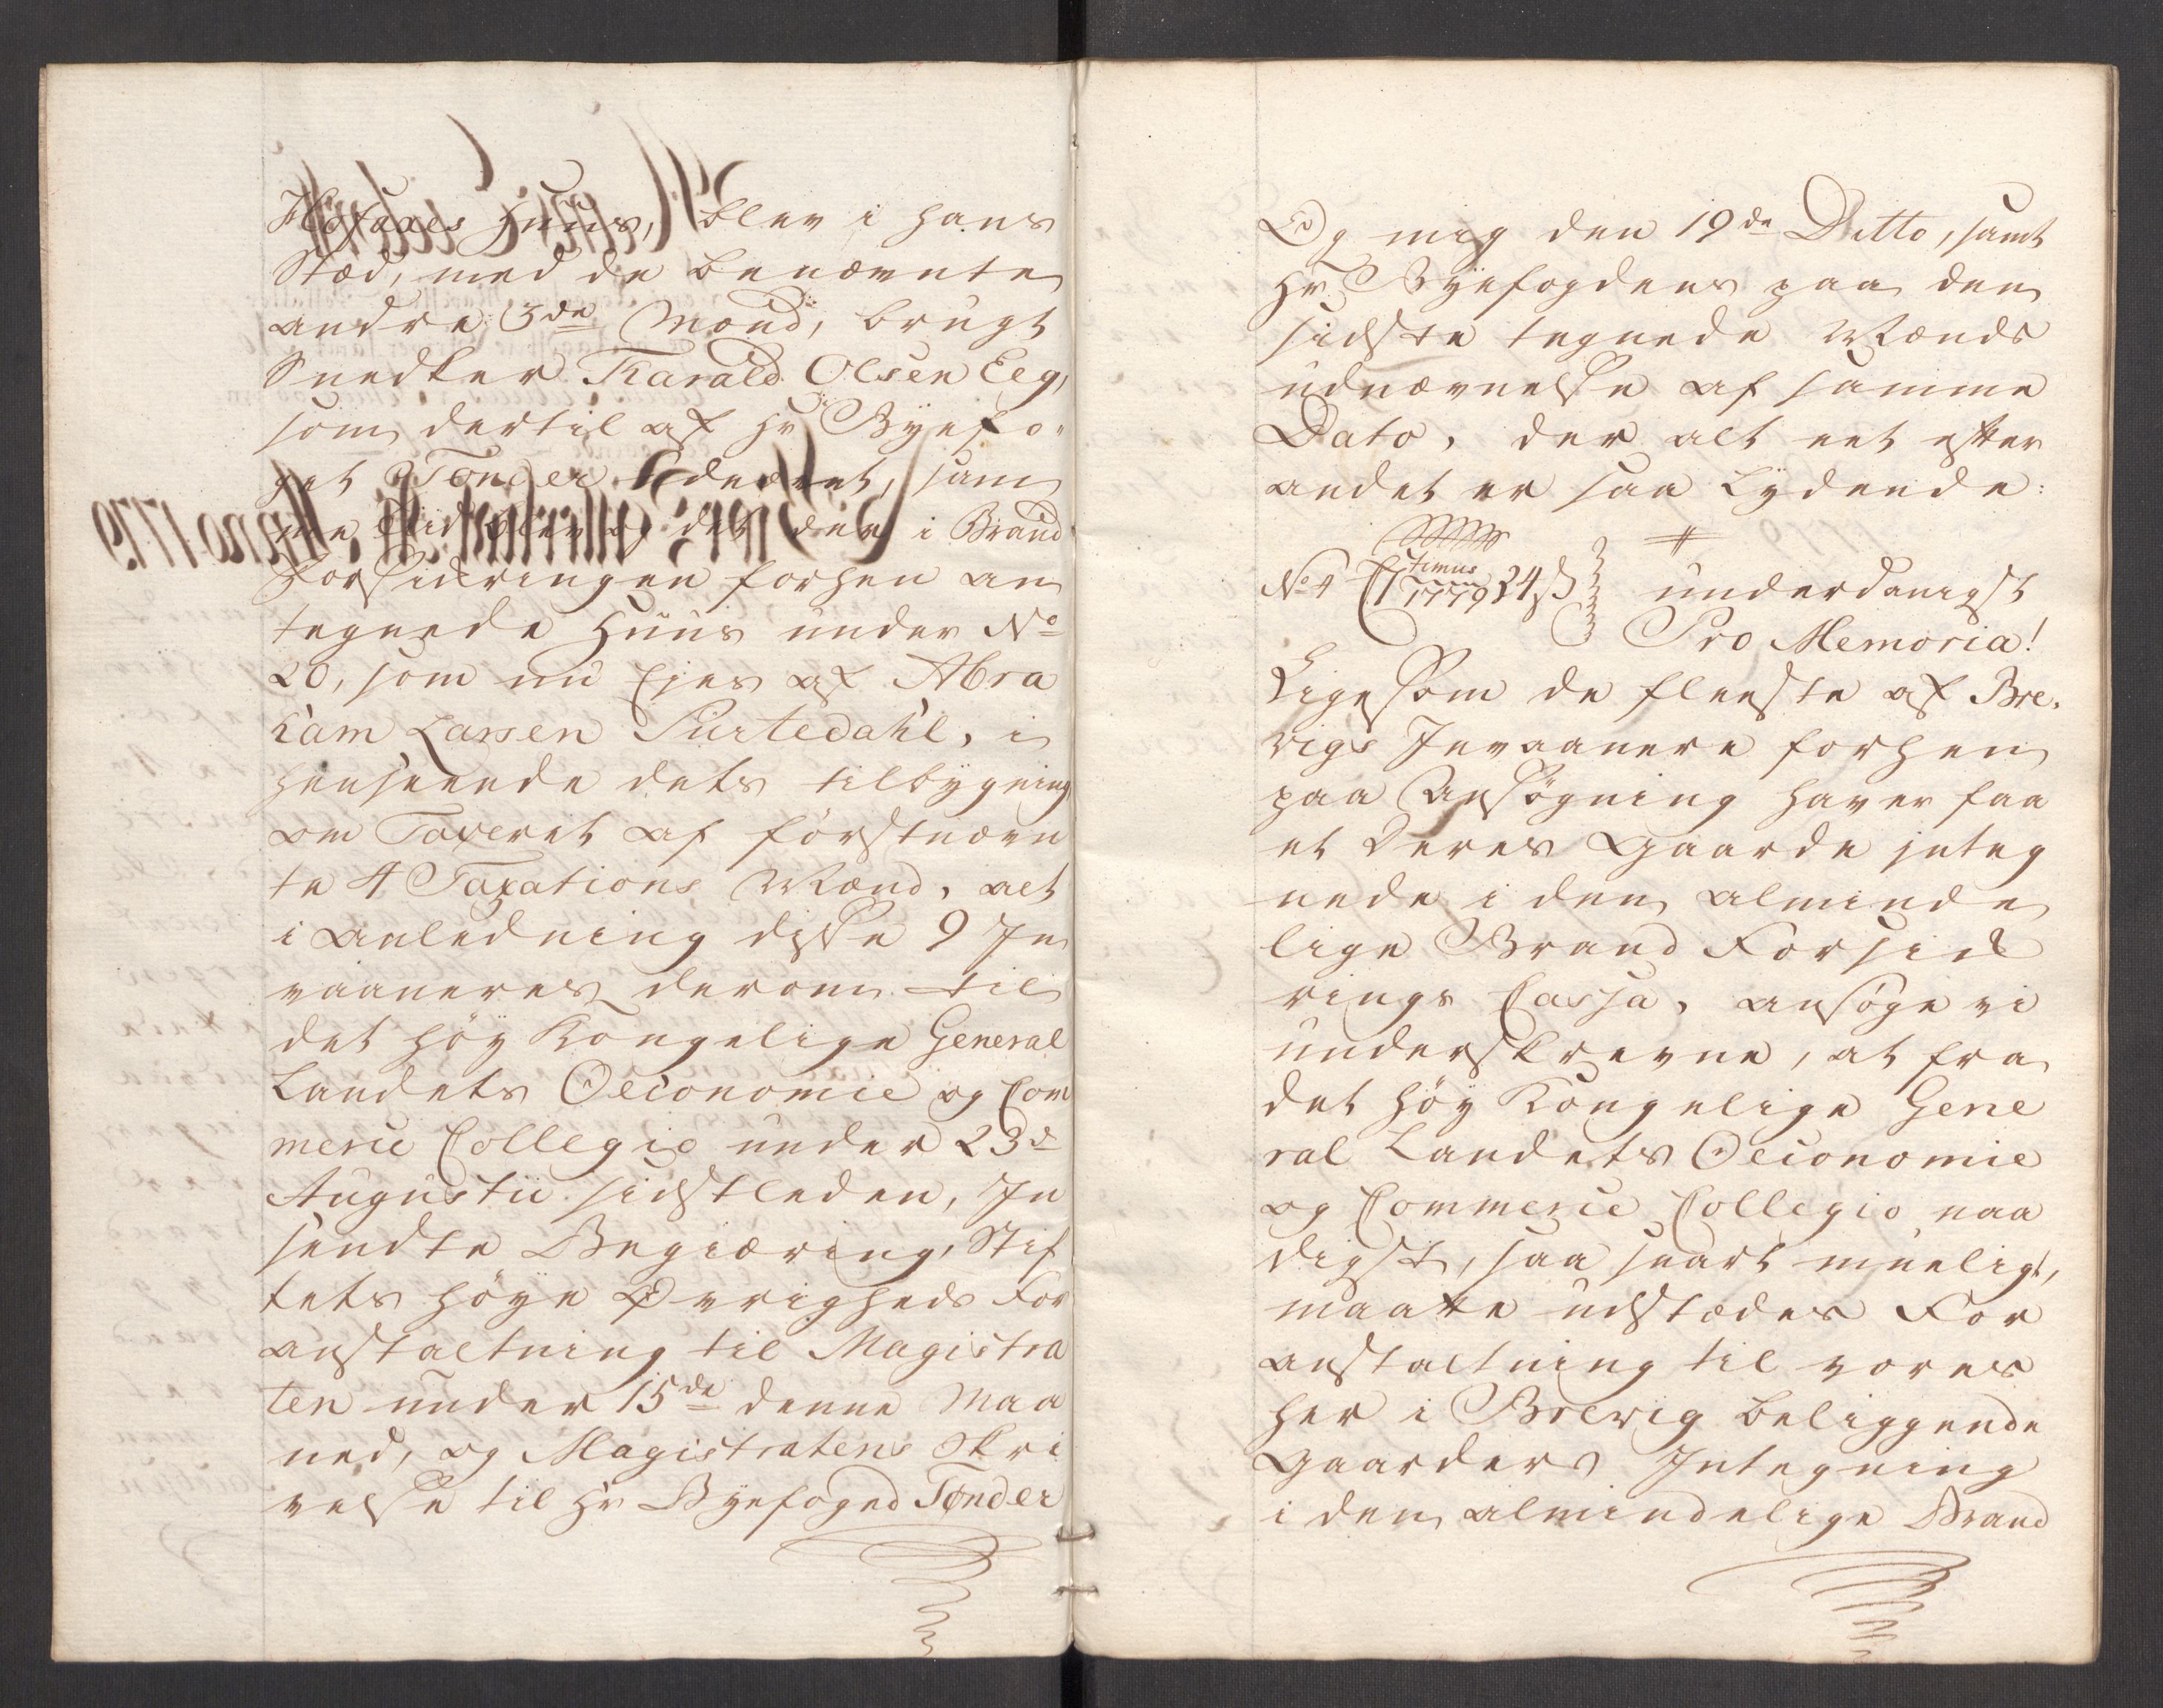 Huus, blev i hans
Stæd, med de benævnte
andre 3de Mænd, brugt
Snedker Harald Olsen Eeg,
som dertil af Hr Byefo-
get Tønder udnævnt, sam
me Tid blev og det der i Brand
Forsikringen forhen an
tegnede Huus under No
20, som nu Ejes af Abra
ham Larsen Surtedahl, i
henseende dets tilbygning
om Taxeret af förstnævn
te 4 Taxations Mænd, alt
i Anledning disse 9 In
vaaneres derom til
det höy Kongelige General
Landets Oeconomie og Com
merce Collegio under 23d
Augustii sidstleden, In
sendte Begiæring, Stif
tets höye Øvrigheds For
anstaltning til Magistra
ten under 15de denne Maa
ned, og Magistratens Skri
velse til Hr Byefoged Tønder
Og mig den 19de Ditto, samt
Hr Byefogdens paa den
sidste tegnede Mænds
udnævnelse af samme
Dato, der alt eet efter
andet er saa Lydende:
No 4 1779 24 ß underdanigst
Pro Memoria!
Ligesom de fleeste af Bre-
vigs Invaanere forhen
paa Ansögning haver faa
et Deres Gaarde integ
nede i den Alminde
lige Brand Forsik
rings Cassa, ansöge vi
underskrevne, at fra
det höy Kongelige Gene
ral Landets Oeconomie
og Commerce Collegio naa
digst, saa snart mueligt,
maatte udstædes For
anstaltning til vores
her i Brevig beliggende
Gaarders Integning
i den almindelige Brand